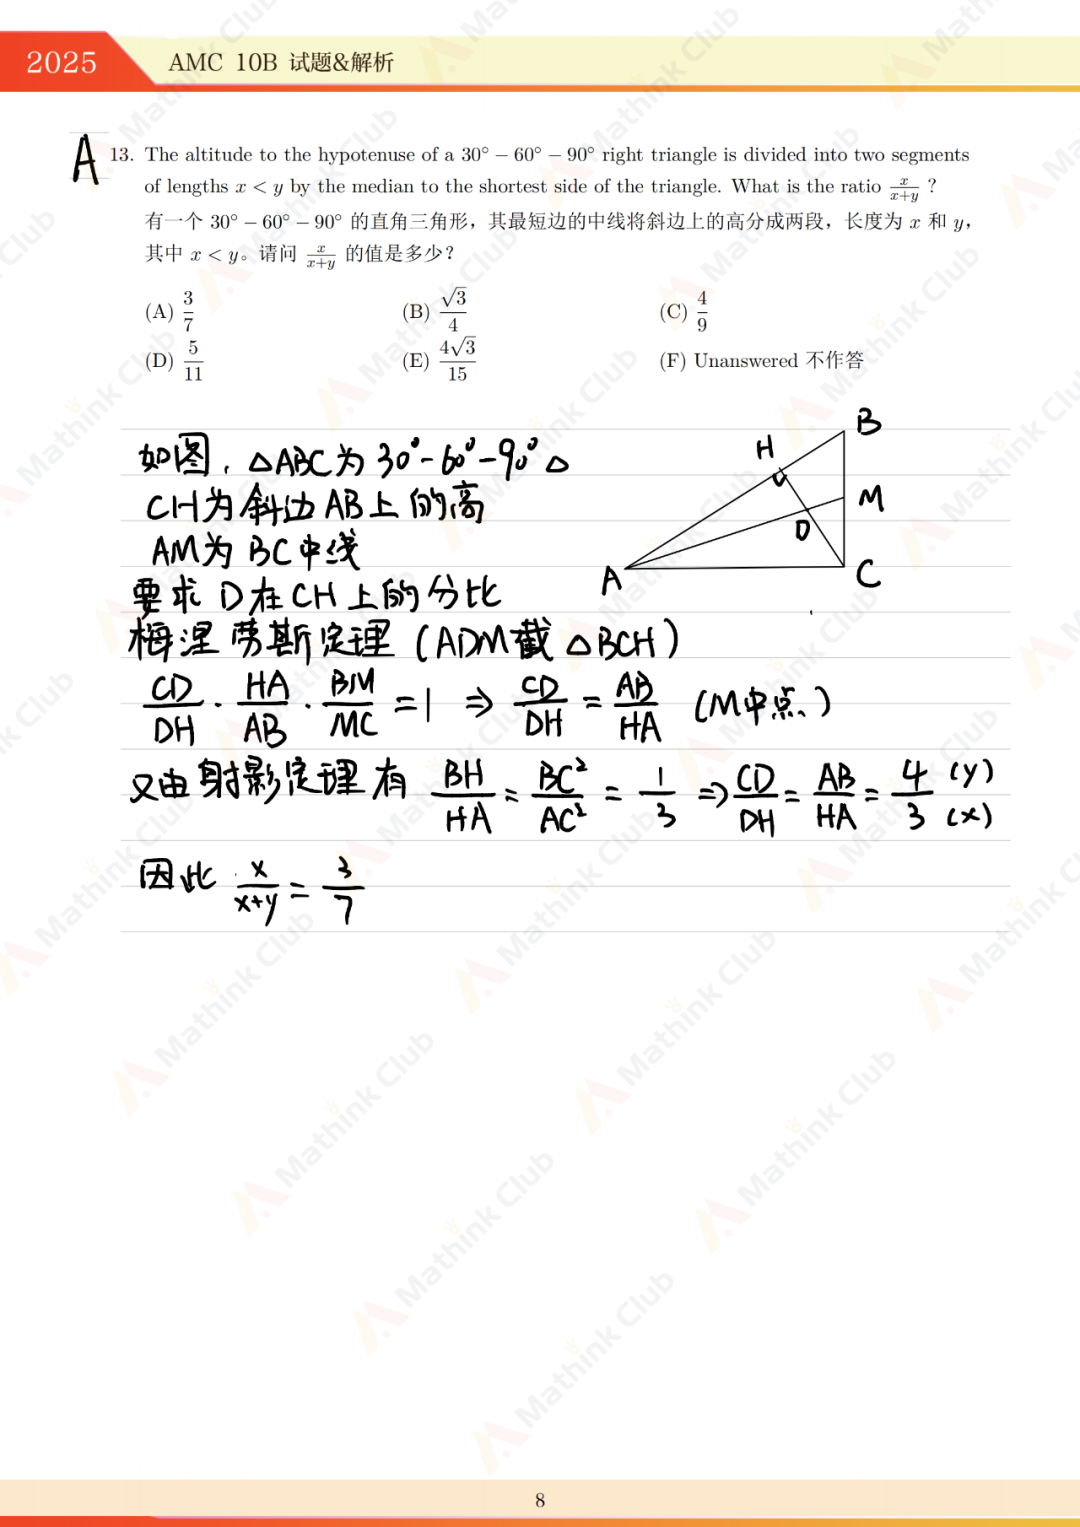 2025
AMC 10B 试题&解析
A
13. The altitude to the hypotenuse of a 30° − 60° − 90° right triangle is divided into two segments
of lengths x < y by the median to the shortest side of the triangle. What is the ratio x/(x+y) ?
有一个 30° − 60° − 90° 的直角三角形，其最短边的中线将斜边上的高分成两段，长度为 x 和 y，
其中 x < y。请问 x/(x+y) 的值是多少？
(A) 3/7 (B) √3/4 (C) 4/9
(D) 5/11 (E) 4√3/15 (F) Unanswered 不作答
如图，△ABC为30°-60°-90°△
CH为斜边AB上的高
AM为BC中线
要求D在CH上的分比
梅涅劳斯定理（ADM截△BCH）
CD/DH · HA/AB · BM/MC = 1 ⇒ CD/DH = AB/HA (M中点)
又由射影定理有 BH/HA = BC²/AC² = 1/3 ⇒ CD/DH = AB/HA = 4/3 (y)/(x)
因此 x/(x+y) = 3/7
B
H
M
D
A
C
8
Mathink Club